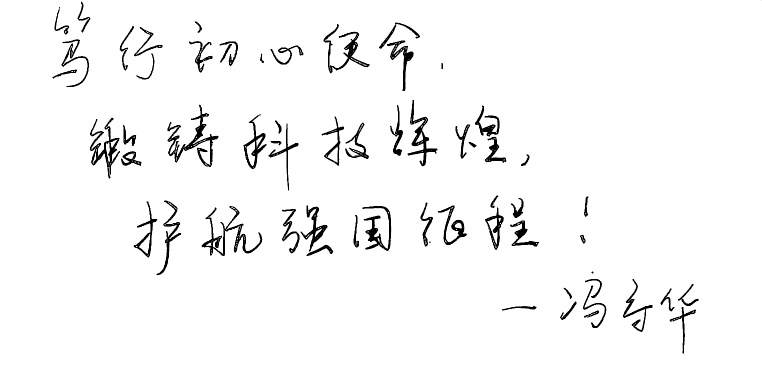 笃行初心使命.
锻铸科技辉煌,
护航强国征程!
—冯守华